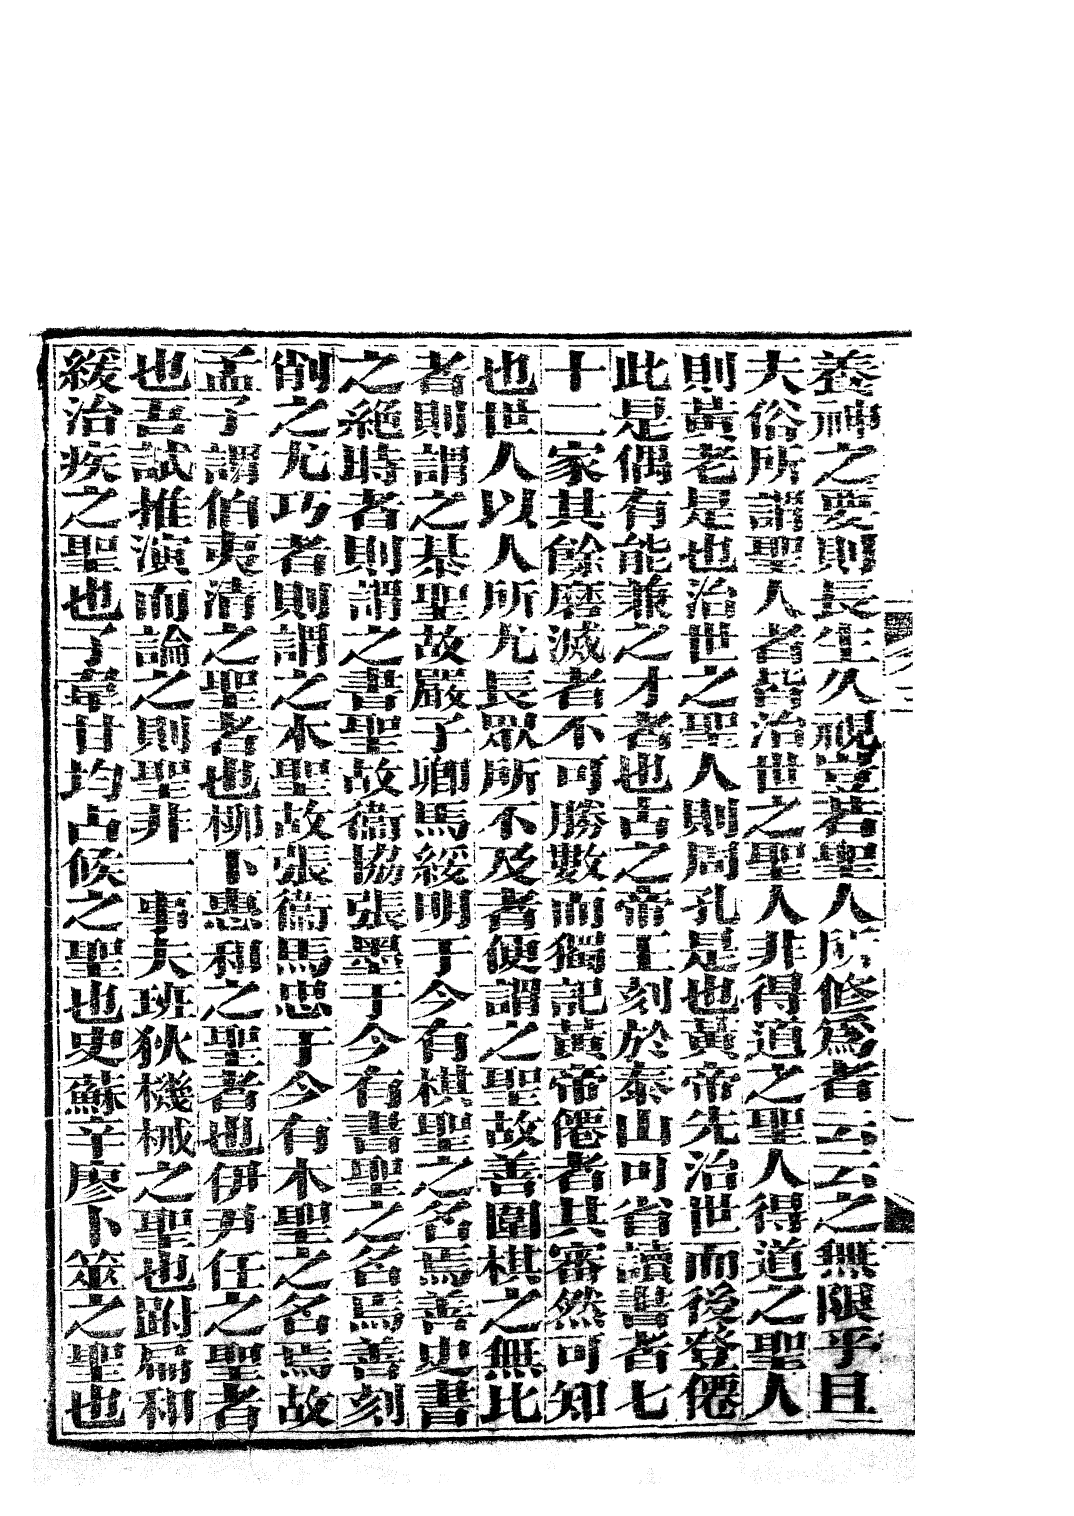 養神之要則長生久視豈若聖人所修爲者云云之無限乎且
夫俗所謂聖人者皆治世之聖人非得道之聖人得道之聖人
則黃老是也治世之聖人則周孔是也黃帝先治世而後登僊
此是偶有能兼之才者也古之帝王刻於泰山可省讀書者七
十二家其餘磨滅者不可勝數而獨記黃帝僊者其審然可知
也世人以人所尤長眾所不及者便謂之聖故善圍棋之無比
者則謂之棊聖故嚴子卿馬綏明于今有棋聖之名焉善史書
之絕時者則謂之書聖故衞協張墨于今有書聖之名焉善刻
削之尤巧者則謂之木聖故張衞馬忠于今有木聖之名焉故
孟子謂伯夷清之聖者也柳下惠和之聖者也伊尹任之聖者
也吾試推演而論之則聖非一事夫班狄機械之聖也跗扁和
緩治疾之聖也子韋甘均占候之聖也史蘇辛廖卜筮之聖也